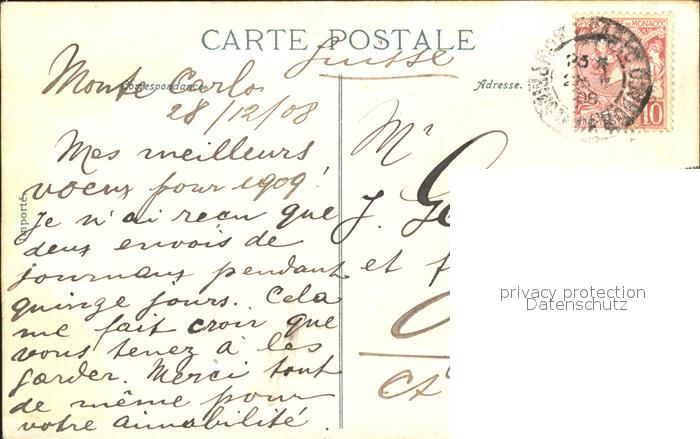 CARTE POSTALE
Suisse
Correspondance.
Adresse.
MONACO
10
Importé
Monte Carlo
28/12/08
Mes meilleurs
voeux pour 1909!
Je n'ai reçu que
deux envois de
journaux pendant
quinze jours. Cela
me fait croir que
vous tenez à les
garder. Merci tout
de même pour
votre aimabilité.
Mr
J. Ge
et f
privacy protection
Datenschutz